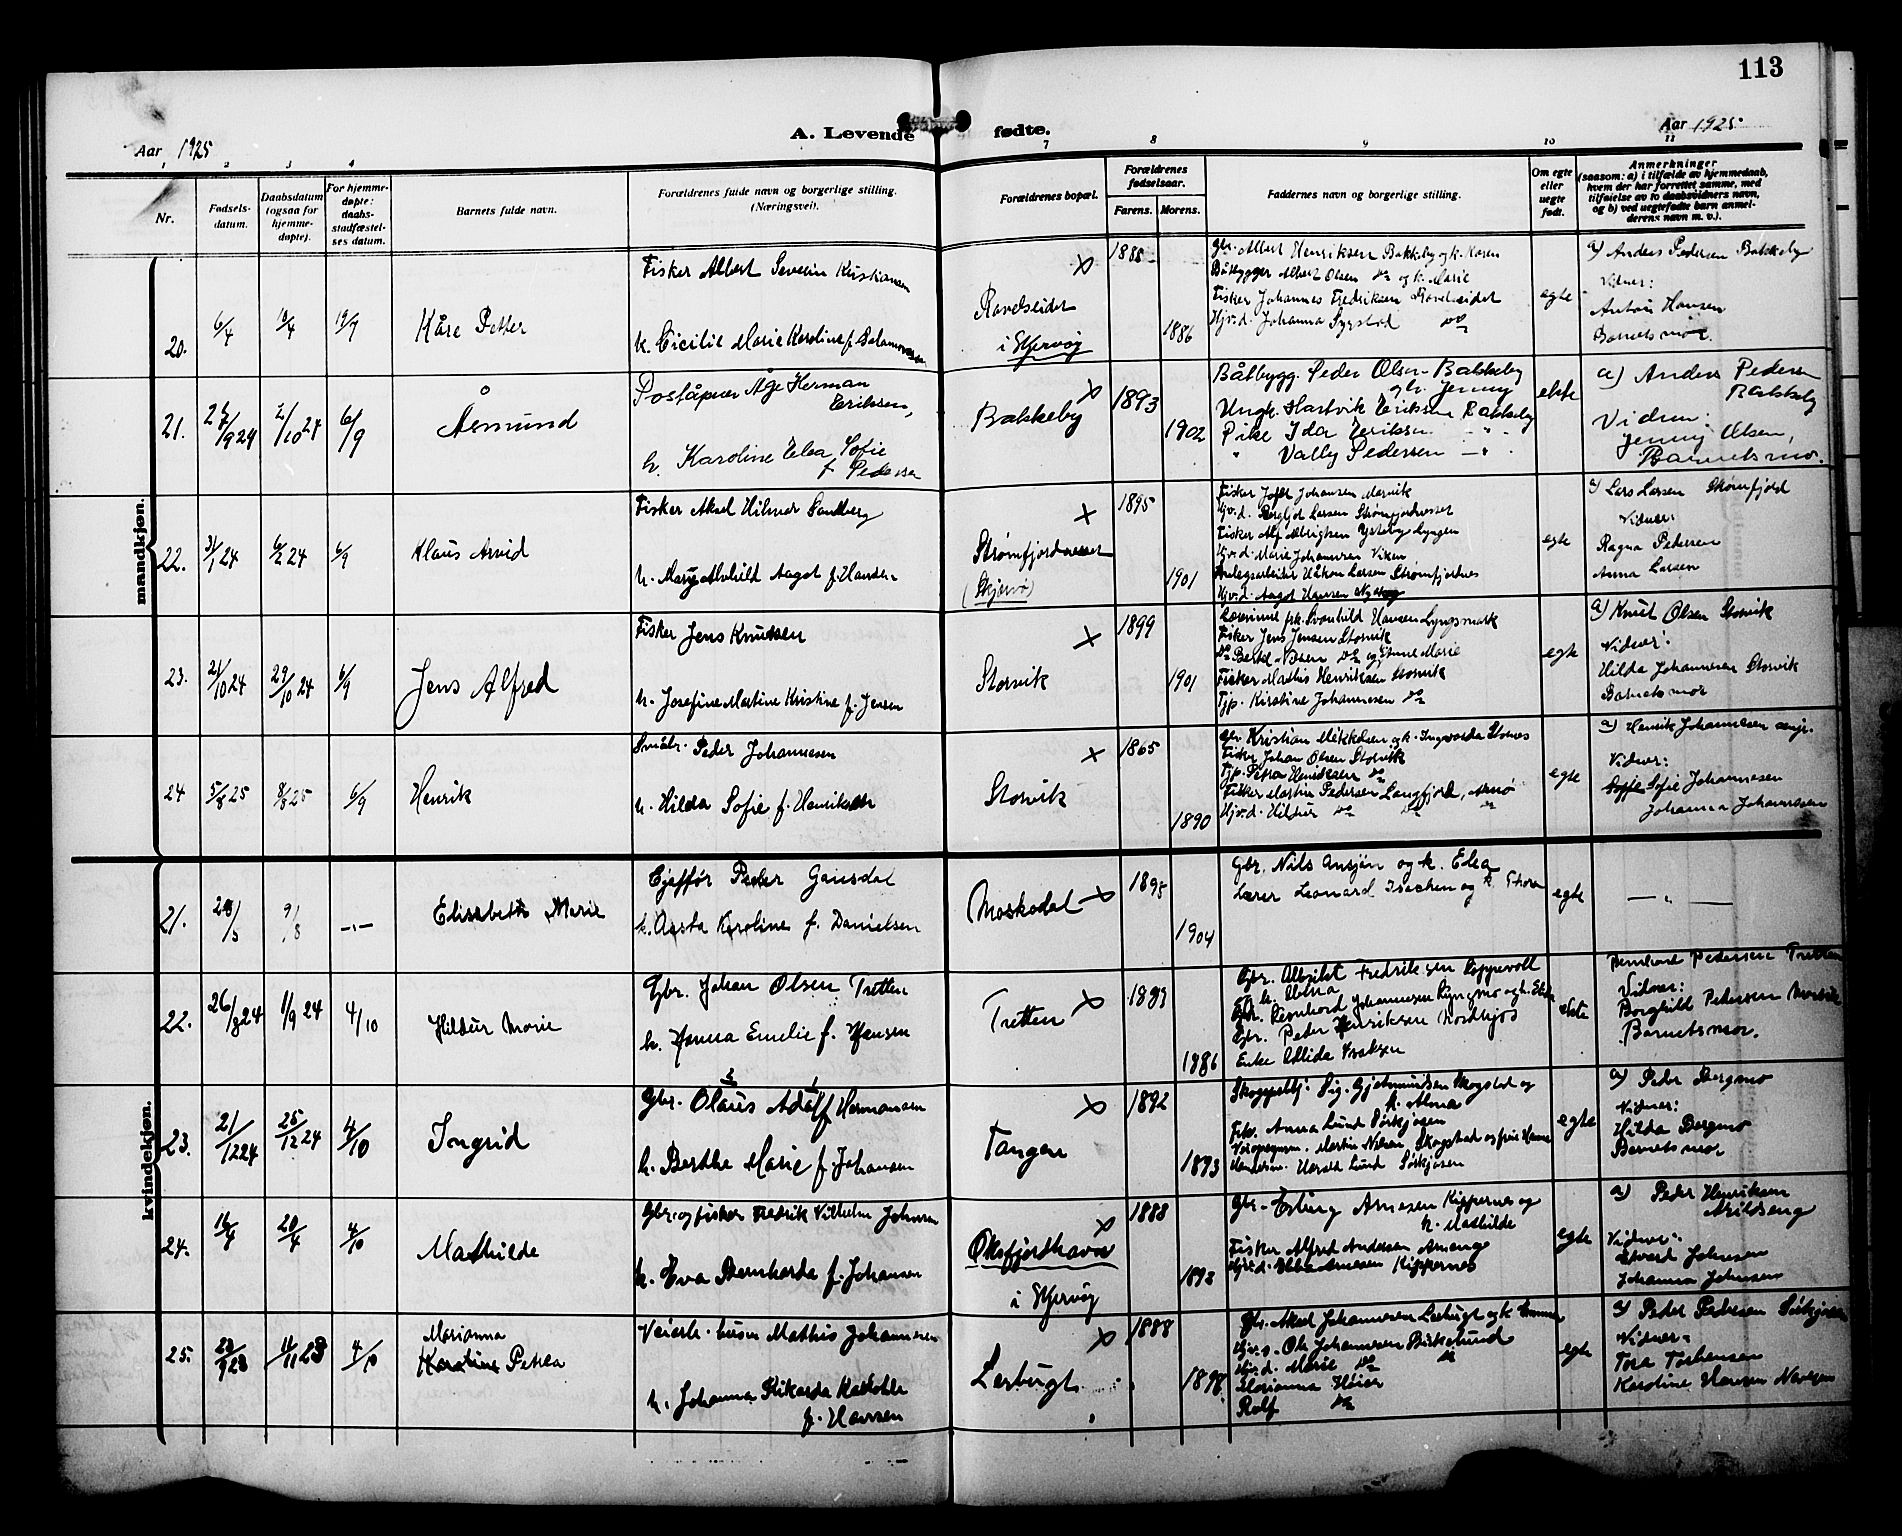 113
A. Levende fødte.
Aar 1925
Aar 1925
1 2 3 4 7 8 9 10 11
Nr.
Fødsels-
datum.
Daabsdatum
(ogsaa for
hjemme-
døpte).
For hjemme-
døpte:
daabs-
stadfæstel-
ses datum.
Barnets fulde navn.
Forældrenes fulde navn og borgerlige stilling.
(Næringsvei).
Forældrenes bopæl.
Forældrenes
fødselsaar.
Farens. Morens.
Faddernes navn og borgerlige stilling.
Om egte
eller
uegte
født.
Anmerkninger
(saasom: a) i tilfælde av hjemmedaab,
hvem der har forrettet samme, med
tilføielse av to daabsvidners navn,
og b) ved uegtefødte barn anmel-
derens navn m. v.).
mandkjøn.
20. 6/4 19/7 Kåre Petter
Fisker Albert Severin Kristiansen
k. Cicilie Marie Karoline f. Salamonsen
Ravelseidet
i Skjervøy
1888 1886
Gbr. Albert Henriksen Bakkeby og k. Karen
Båtbygger Albert Olsen do og k. Marie
Fisker Johannes Fredriksen Ravelseidet
Hjv.d. Johanna do
egte
a) Anders Pedersen Bakkeby
Vidner:
Hansen
Barnets mor.
21. 2/10 24 6/9 Åsmund
Poståpner Åge Herman
Eriksen,
k. Karoline Elea Sofie
f. Pedersen
Bakkeby
1893 1902
Båtbygg. Peder Olsen Bakkeby
og k. Jenny
Ungk. Hartvik Eriksen Bakkeby
Pike Ida Eriksen - " -
" Vally Pedersen - " -
ekte
a) Anders Pedersen
Bakkeby
Vidner:
Jenny Olsen,
Barnets mor.
22. 31/1 24 6/2 24 6/9 Klaus Arvid
Fisker Aksel Hilmar Sandberg
k. Mary Alvhild Aagot f. Hansen
Strømfjordnesset
(Skjervø)
1895 1901
Fisker Johansen Marvik
Hjv.d. Bergljot Larsen Strømfjordnesset
Fisker Alf Albrigtsen Ysteby Lyngen
Hjv.d. Marie Johannesen Viken
Anlegsarbeider Håkon Larsen Strømfjordnes
Hjv.d. Aagot Hansen
egte
a) Lars Larsen Strømfjord
Vidner:
Ragna Pedersen
Anna Larsen
23. 21/10 24 29/10 24 6/9 Jens Alfred
Fisker Jens Knutsen
k. Josefine Martine Kristine f. Jensen
Storvik
1899 1901
Lærerinne frk. Svanhild Hansen Lyngsmark
Fisker Jens Jensen Storvik
do Bertel Olsen do og Anne Marie
Fisker Mathis Henriksen Storvik
Tjp. Kirstine Johannesen do
egte
a) Knut Olsen Storvik
Vidner:
Hilda Johannesen Storvik
Barnets mor
24 5/8 25 8/8 25 6/9 Henrik
Småbr. Peder Johannesen
k. Hilda Sofie f. Henriksen
Storvik
1865 1890
Gbr. Kristian Mikkelsen og k. Ingvarda Stornes
Fisker Johan Olsen Storvik
Tjp. Petra Henriksen do
Fisker Martin Pedersen Langfjord, Arnø
Hjv.d. Hildur do do "
egte
a) Henrik Johannesen
Vidner:
Sofie Johannesen
Johanna Johannesen
kvindekjøn.
21. 9/8 -"- Elisabeth Marie
Sjåffør Peder Gausdal
k. Aasta Karoline f. Danielsen
Moskodal
1895 1904
Gbr. Nils Ansjøn og k. Elea
Lærer Leonard Isachsen og k. Thora
egte
— " —
22. 26/8 24 1/9 24 4/10 Hildur Marie
Gbr. Johan Olsen Tretten
k. Hanna Emelie f. Hansen
Tretten
1899 1886
Gbr. Albrikt Fredriksen
k. Alma
Gbr. Bernhard Johannesen
Gbr. Peter Henriksen Nordkjos
Enke Alida Isaksen
ekte
Bernhard Pedersen Tretten
Vidner:
Borghild Pedersen
Barnets mor.
23. 21/12 24 25/12 24 4/10 Ingrid
Gbr. Olaus Adolf Hermansen
k. Berthe Marie f. Johansen
Tangen
1892 1893
Sig. Gjetmundsen Skogstad og
k. Alma
Frk. Anna Lund Sørkjosen
Martin Nilsen Skogstad og frue
Handelsm. Harald Lund Sørkjosen
egte
a) Peder Bergmo
Vidner:
Hilda Bergmo
Barnets mor
24. 16/4 20/4 4/10 Mathilde
Gbr. og fisker Fredrik Vilhelm Johnsen
k. Eva Bernharda f. Johansen
Oksfjordhavn
i Skjervøy
1888 1893
Gbr. Arnesen Kippernes og
k. Mathilde
Fisker Alfred Andersen
Hjv.d. Ebba Arnesen Kippernes
egte
a) Peder Henriksen
Vidner:
Edvard Johnsen
Johanna Johnsen
25. 4/10 Marianna
Karoline Petrea
Mathis Johannesen
k. Johanna Rikarda
f. Hansen
Leirbugt
1888 1898
Gbr. Aksel Johannesen Leirbugt og k.
Ole Johannesen Birkelund
Hjv.d. Marie do
Marianna Høier
Rolf do
egte
a) Peder Pedersen Sørkjosen
Vidner:
Tora Torbensen
Karoline Hansen